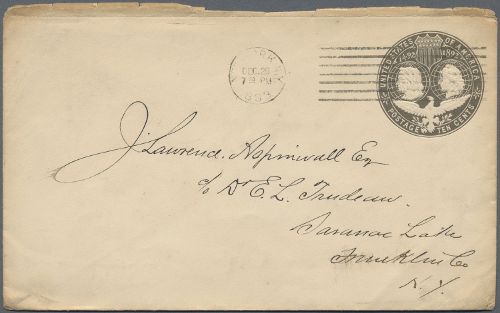 NEW YORK, N.Y.
DEC. 29
7 30 PM
1893
UNITED STATES OF AMERICA
1492 1892
POSTAGE TEN CENTS
J. Lawrence Aspinwall Esq
c/o Dr E. L. Trudeau.
Saranac Lake
Franklin Co
N. Y.